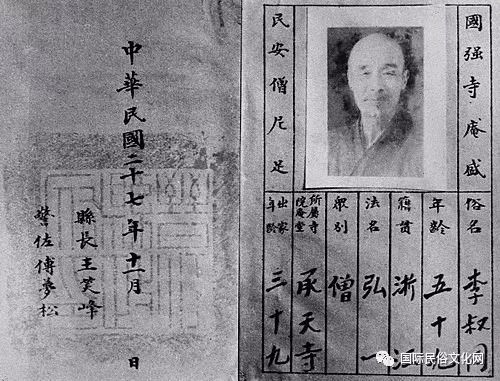 國强寺庵盛
民安僧尼足
俗名 李叔同
年齡 五十九
籍貫 浙江
法名 弘一
眾別 僧
所屬寺院庵堂 承天寺
出家年齡 三十九
中華民國二十七年十一月 日
縣長王笑峰
警佐傅夢松
国际民俗文化网